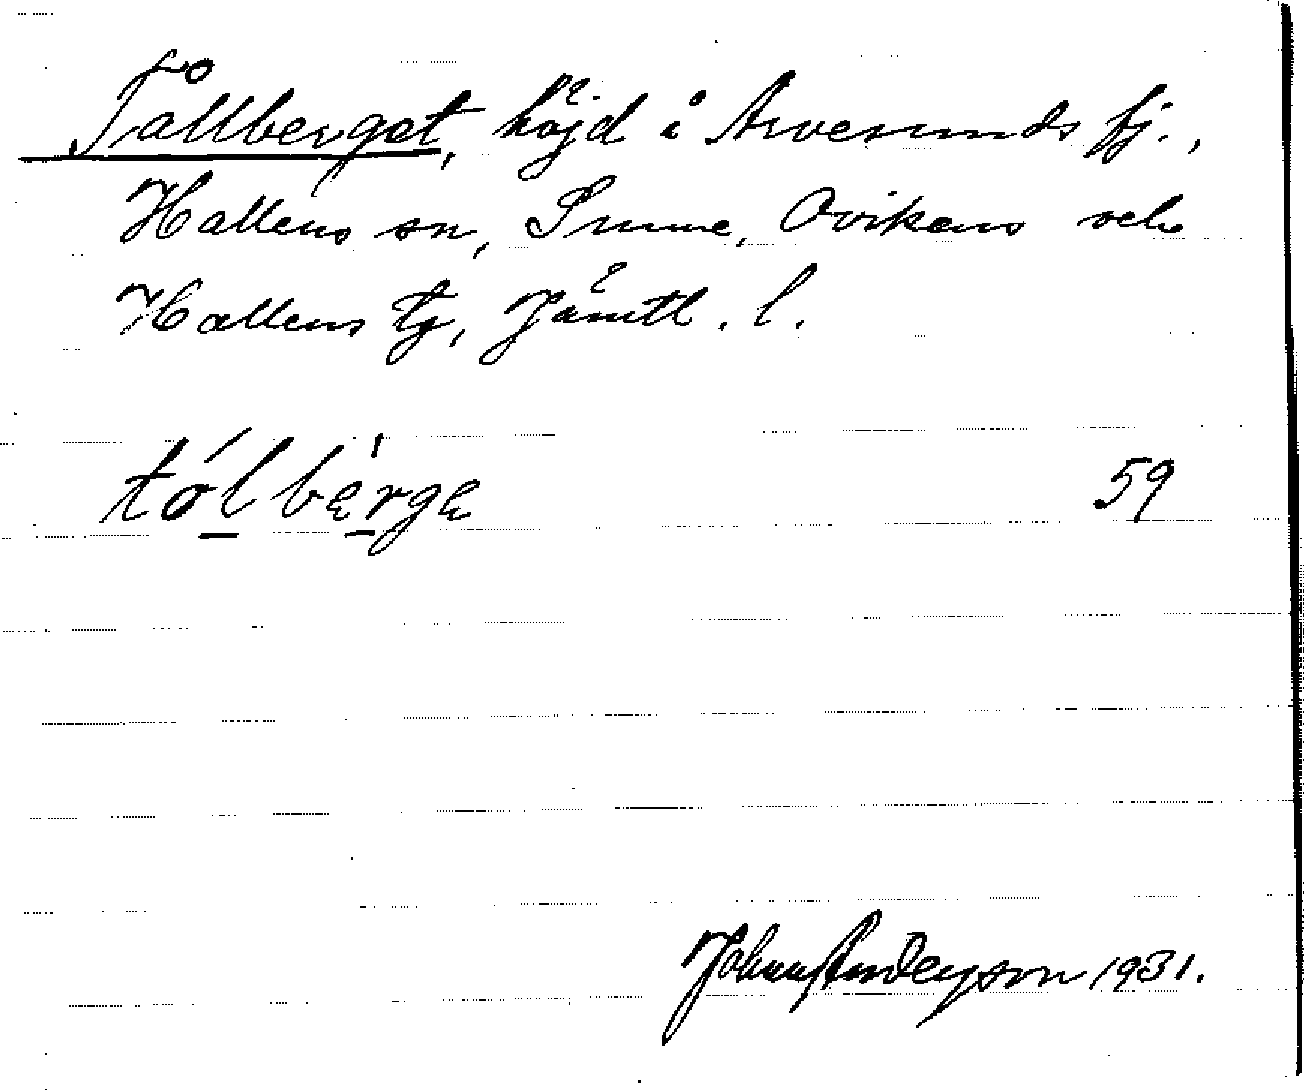 Tållberget, höjd i Arvesunds fj.,
Hallens sn, Sunne, Ovikens och
Hallens tg, Jämtl. l.
tó̱lbe̱rge 59
Johnny Andersson 1931.